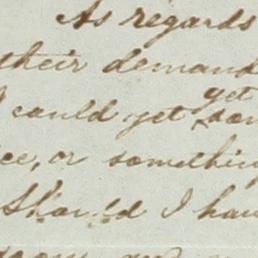 As regards
their demand
I could get
yet
ce, or something
Should I hav